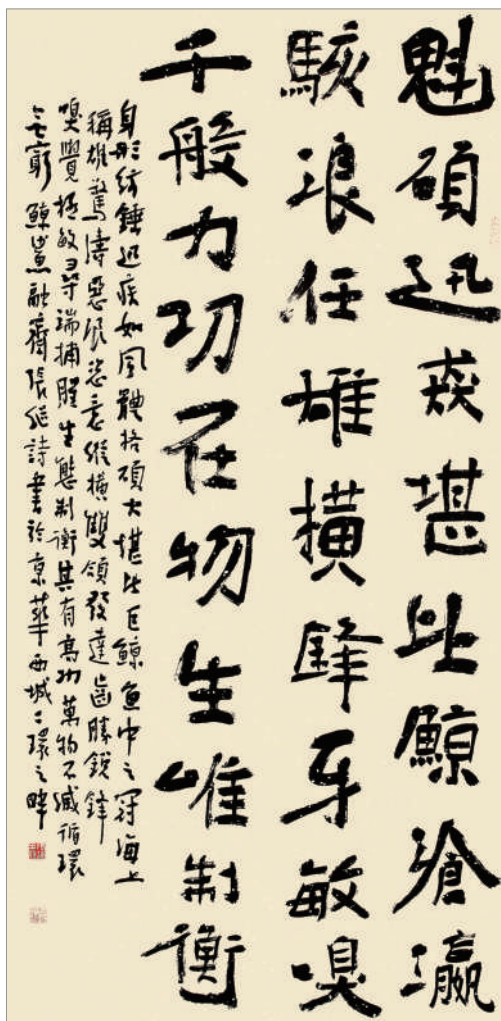 魁碩迅猋堪比鯨滄瀛
駭浪任雄橫鋒牙敏嗅
千般力功在物生唯制衡
身形紡錘迅疾如風體格碩大堪比巨鯨魚中之冠海上
稱雄驚濤惡浪恣意縱橫雙頜發達齒勝銳鋒
嗅覺極敏尋端捕腥生態制衡其有高功萬物不滅循環
无窮 鯨鯊 融齋張繼詩書於京華西城二環之畔